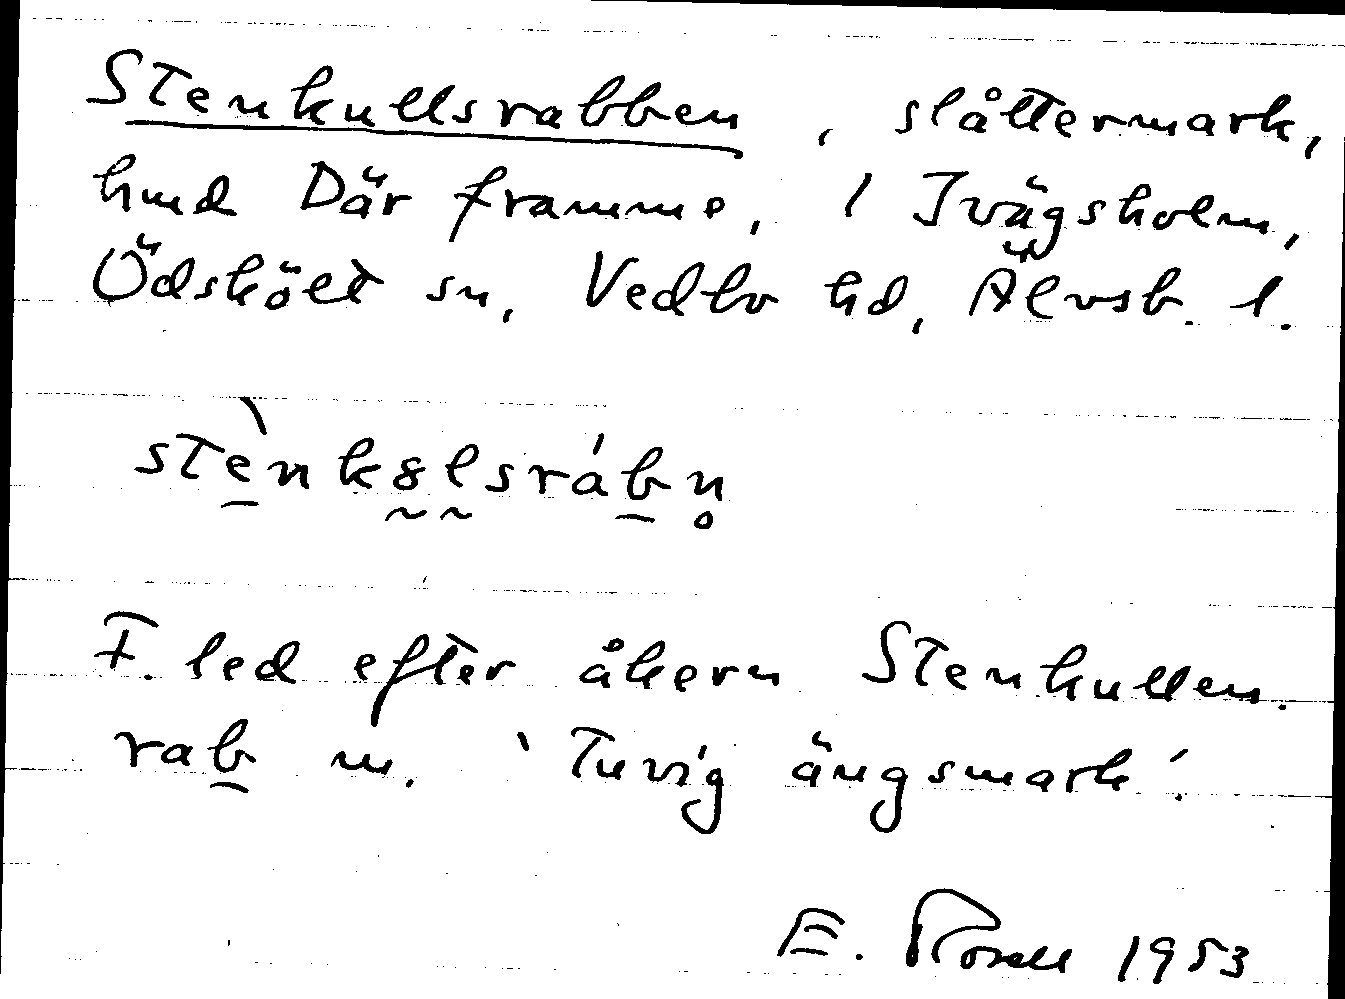 Stenkullsrabben, slåttermark,
hmd Där framme, 1 Ivägsholm,
Ödskölt sn, Vedbo hd, Älvsb. l.
stènk8lsrábn̥
F. led efter åkern Stenkullen.
rab m. 'Tuvig ängsmark'.
E. Rosell 1953